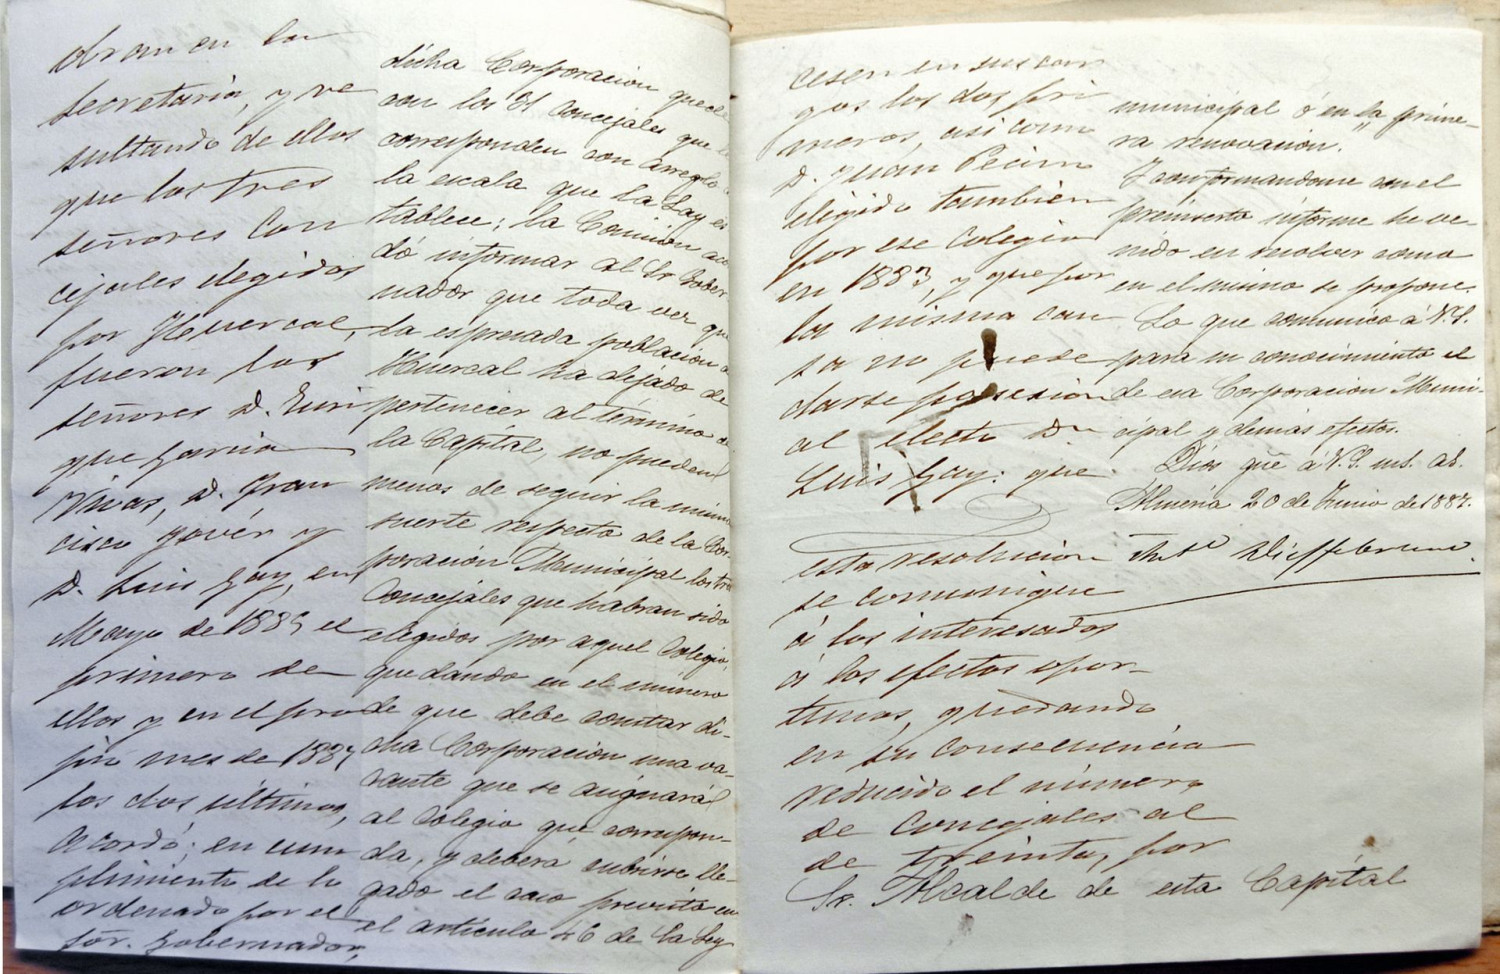 obran en la
Secretaria, y re
sultando de ellos
que los tres
señores Con
cejales elegidos
por Huercal,
fueron los
señores D. Enri
que Garcia
Vivas, D. Fran
cisco Jover y
D. Luis Gay, en
Mayo de 1885 el
primero de
ellos y en el pro
pio mes de 1887
los dos últimos,
acordó; en cum
plimiento de lo
ordenado por el
Sôr. Gobernador,
dicha Corporacion quede
con los 31 Concejales que le
corresponden con arreglo a
la escala que la Ley es
tablece; la Comision acor
dó informar al Sr Gober
nador que toda vez que
la espresada poblacion de
Huercal ha dejado de
pertenecer al término de
la Capital, no pueden
menos de seguir la misma
suerte respecto de la Cor
poracion Municipal los tres
Concejales que habran sido
elegidos por aquel Colegio,
quedando en el número
de que debe constar di-
cha Corporacion una va-
cante que se asignará
al Colegio que correspon-
da, y deberá cubrirse lle-
gado el caso previsto en
el artículo 46 de la Ley
cesen en sus car
gos los dos pri
meros, asi como
D. Juan
elegido tambien
por ese Colegio
en 1883, y que por
la misma cau
sa no puede
darse posesion
al electo Dn
Luis Gay: que
esta resolucion
se comunique
á los interesados
á los efectos opor-
tunos, quedando
en su consecuencia
reducido el número
de Concejales al
de treinta, por
municipal ó en la prime-
ra renovacion.
Y conformandome con el
preinserto informe he ve-
nido en resolver como
en el mismo se propone.
Lo que comunico á V.S.
para su conocimiento el
de esa Corporacion Muni-
cipal y demás efectos.
Dios gue á V.S. ms. as.
Almeria 20 de Junio de 1887.
Sr. Alcalde de esta Capital